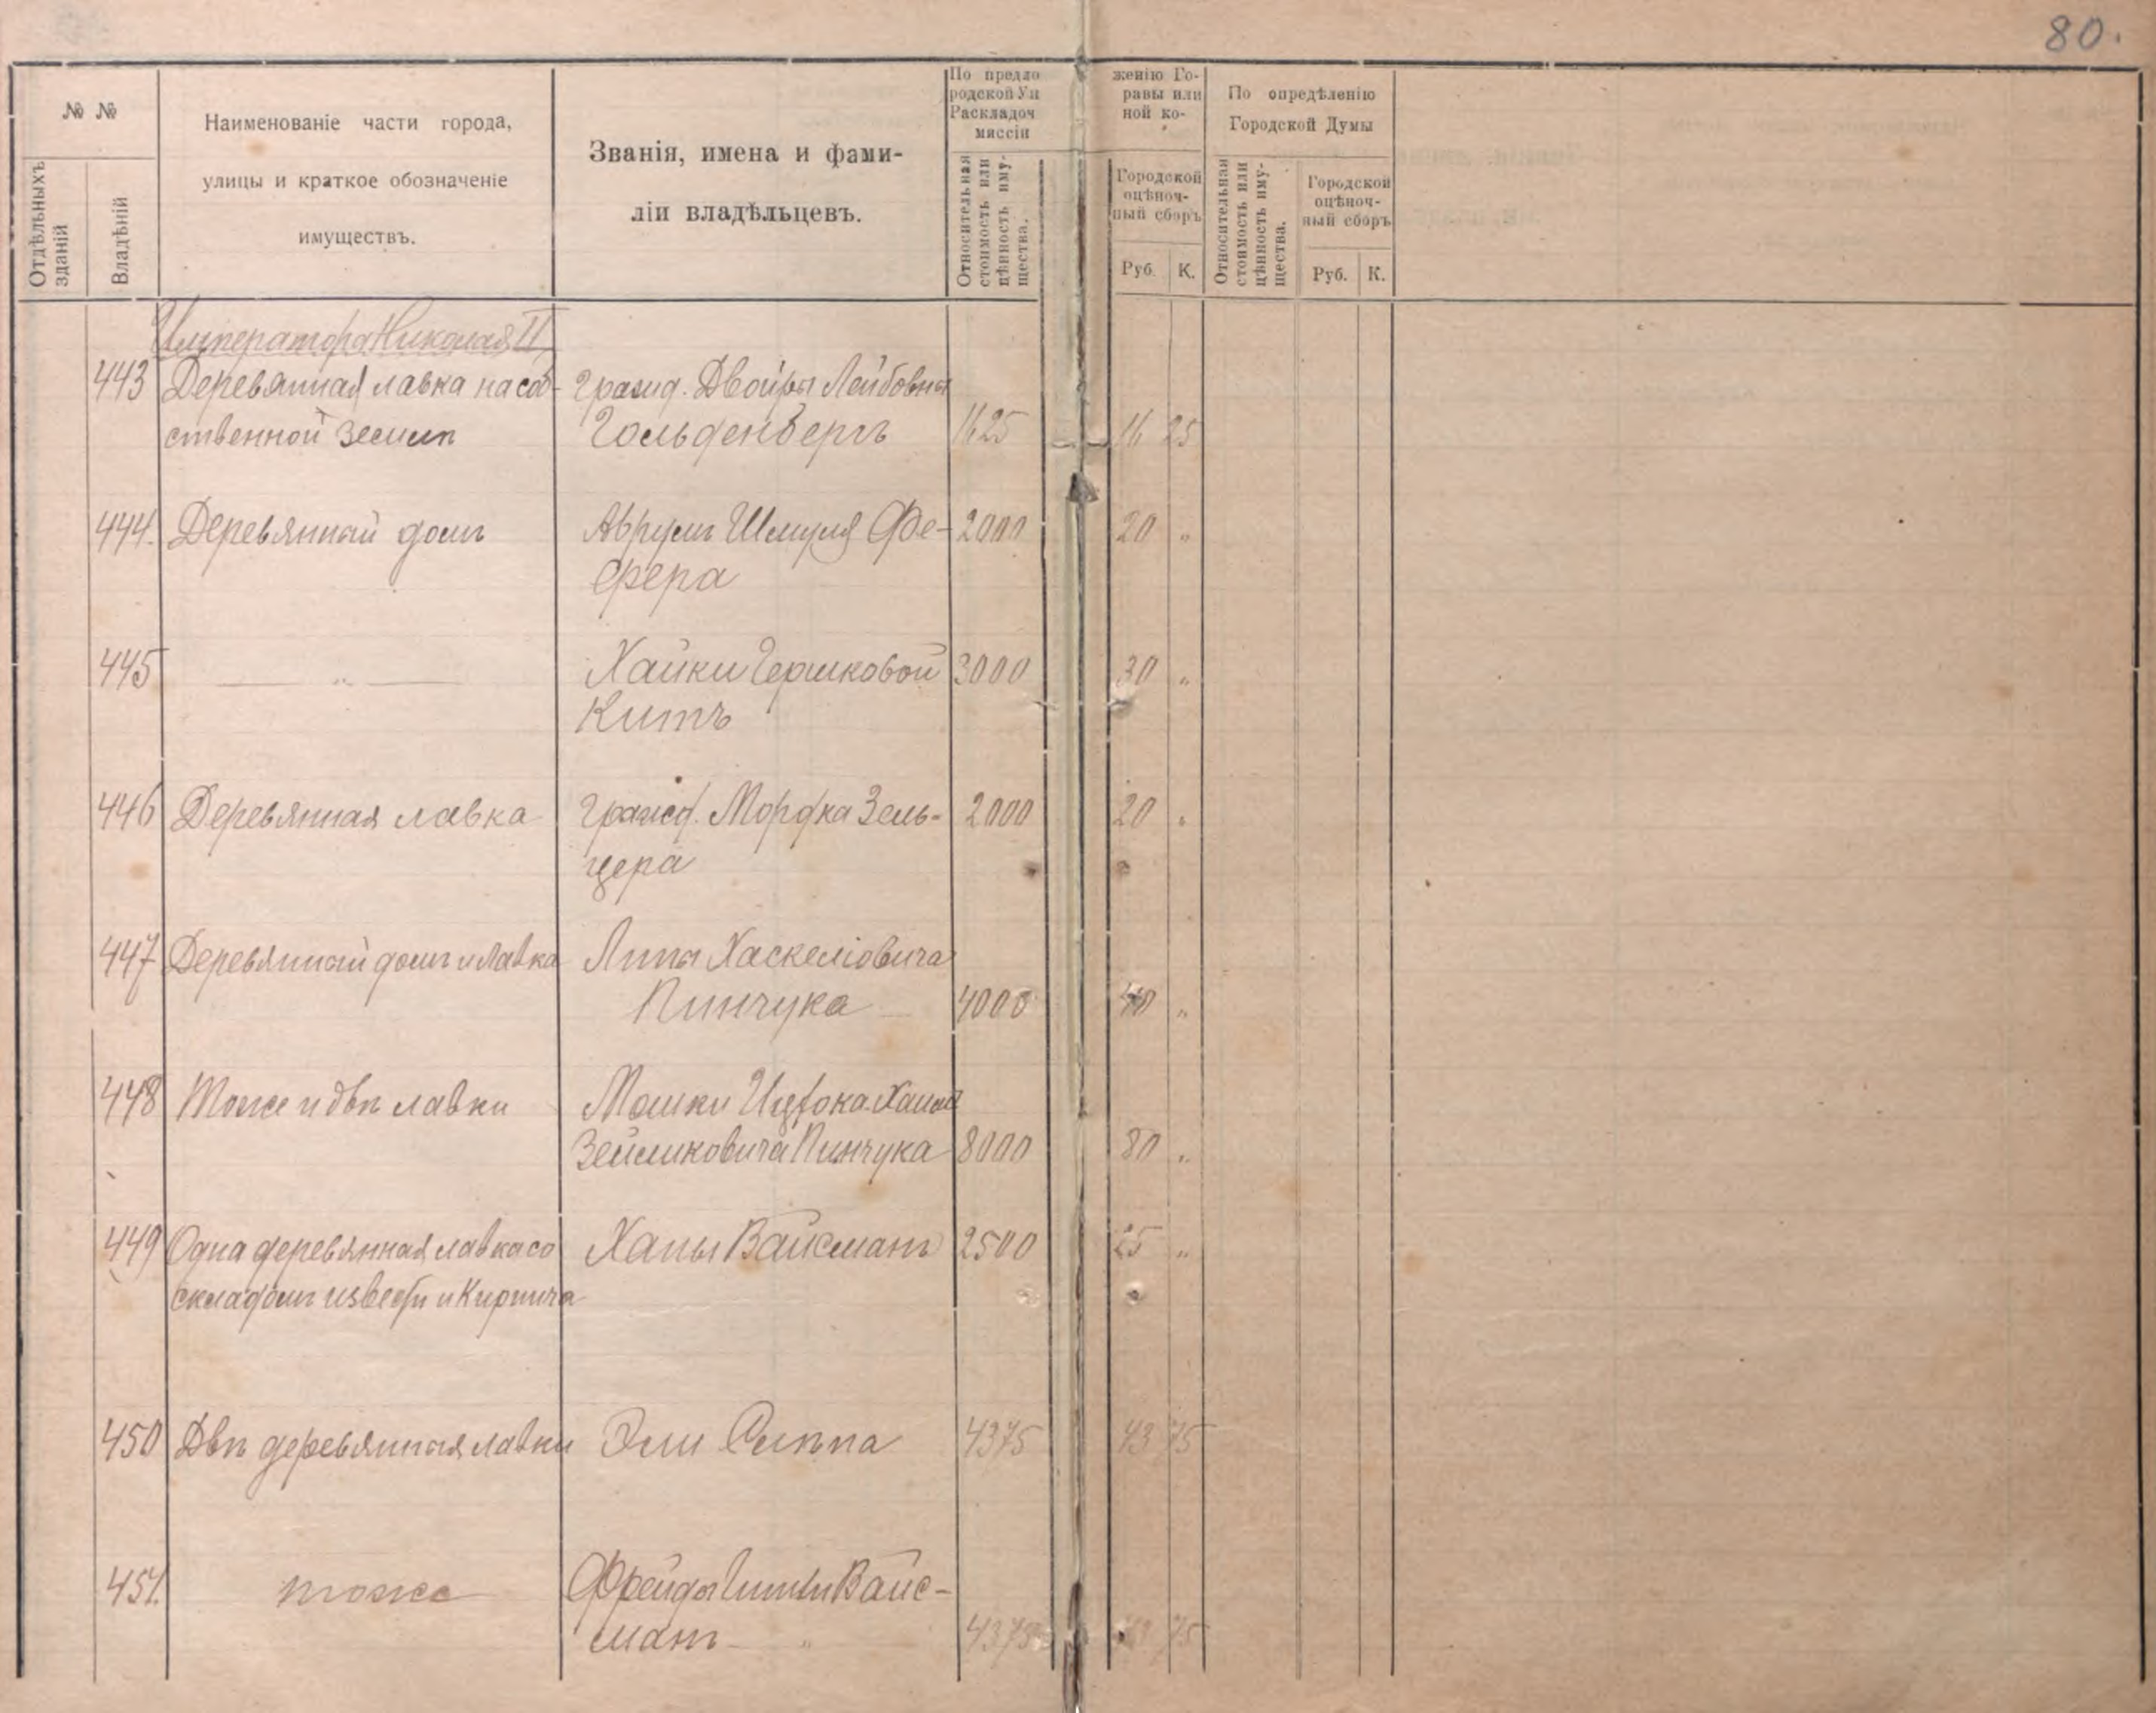 80.
№ №
Отдѣльныхъ зданій
Владѣній
Наименованіе части города,
улицы и краткое обозначеніе
имуществъ.
Званія, имена и фами-
ліи владѣльцевъ.
По предло
родской Уп
Раскладоч
миссіи
женію Го-
равы или
ной ко-
Относительная
стоимость или
цѣнность иму-
щества.
Городской
оцѣноч-
ный сборъ
Руб. К.
По опредѣленію
Городской Думы
Относительная
стоимость или
цѣнность иму-
щества.
Городской
оцѣноч-
ный сборъ
Руб. К.
Императора Николая II
443 Деревянная лавка на соб- Гражд. Двойры Лейбовны
ственной земли Гольденбергъ 1625 16 25
444. Деревянный домъ Аврумъ Шмуля Фе- 2000 20 "
фера
445 — " — Хайки Гершковой 3000 30 "
Китъ
446 Деревянная лавка Гражд. Мордка Зель- 2000 20 "
цера
447 Деревянный домъ и лавка Липы Хаскеліовича
Пинчука 4000 40 "
448 Тоже и двѣ лавки Мошки Ицгока
Зейликовича Пинчука 8000 80 "
449 Одна деревянная лавка со Ханы Вайсманъ 2500 25 "
складомъ извести и Кирпича
450 Двѣ деревянная лавки Эли 4375 43 75
451. тоже Фрейды Вайс-
манъ " 4375 43 75